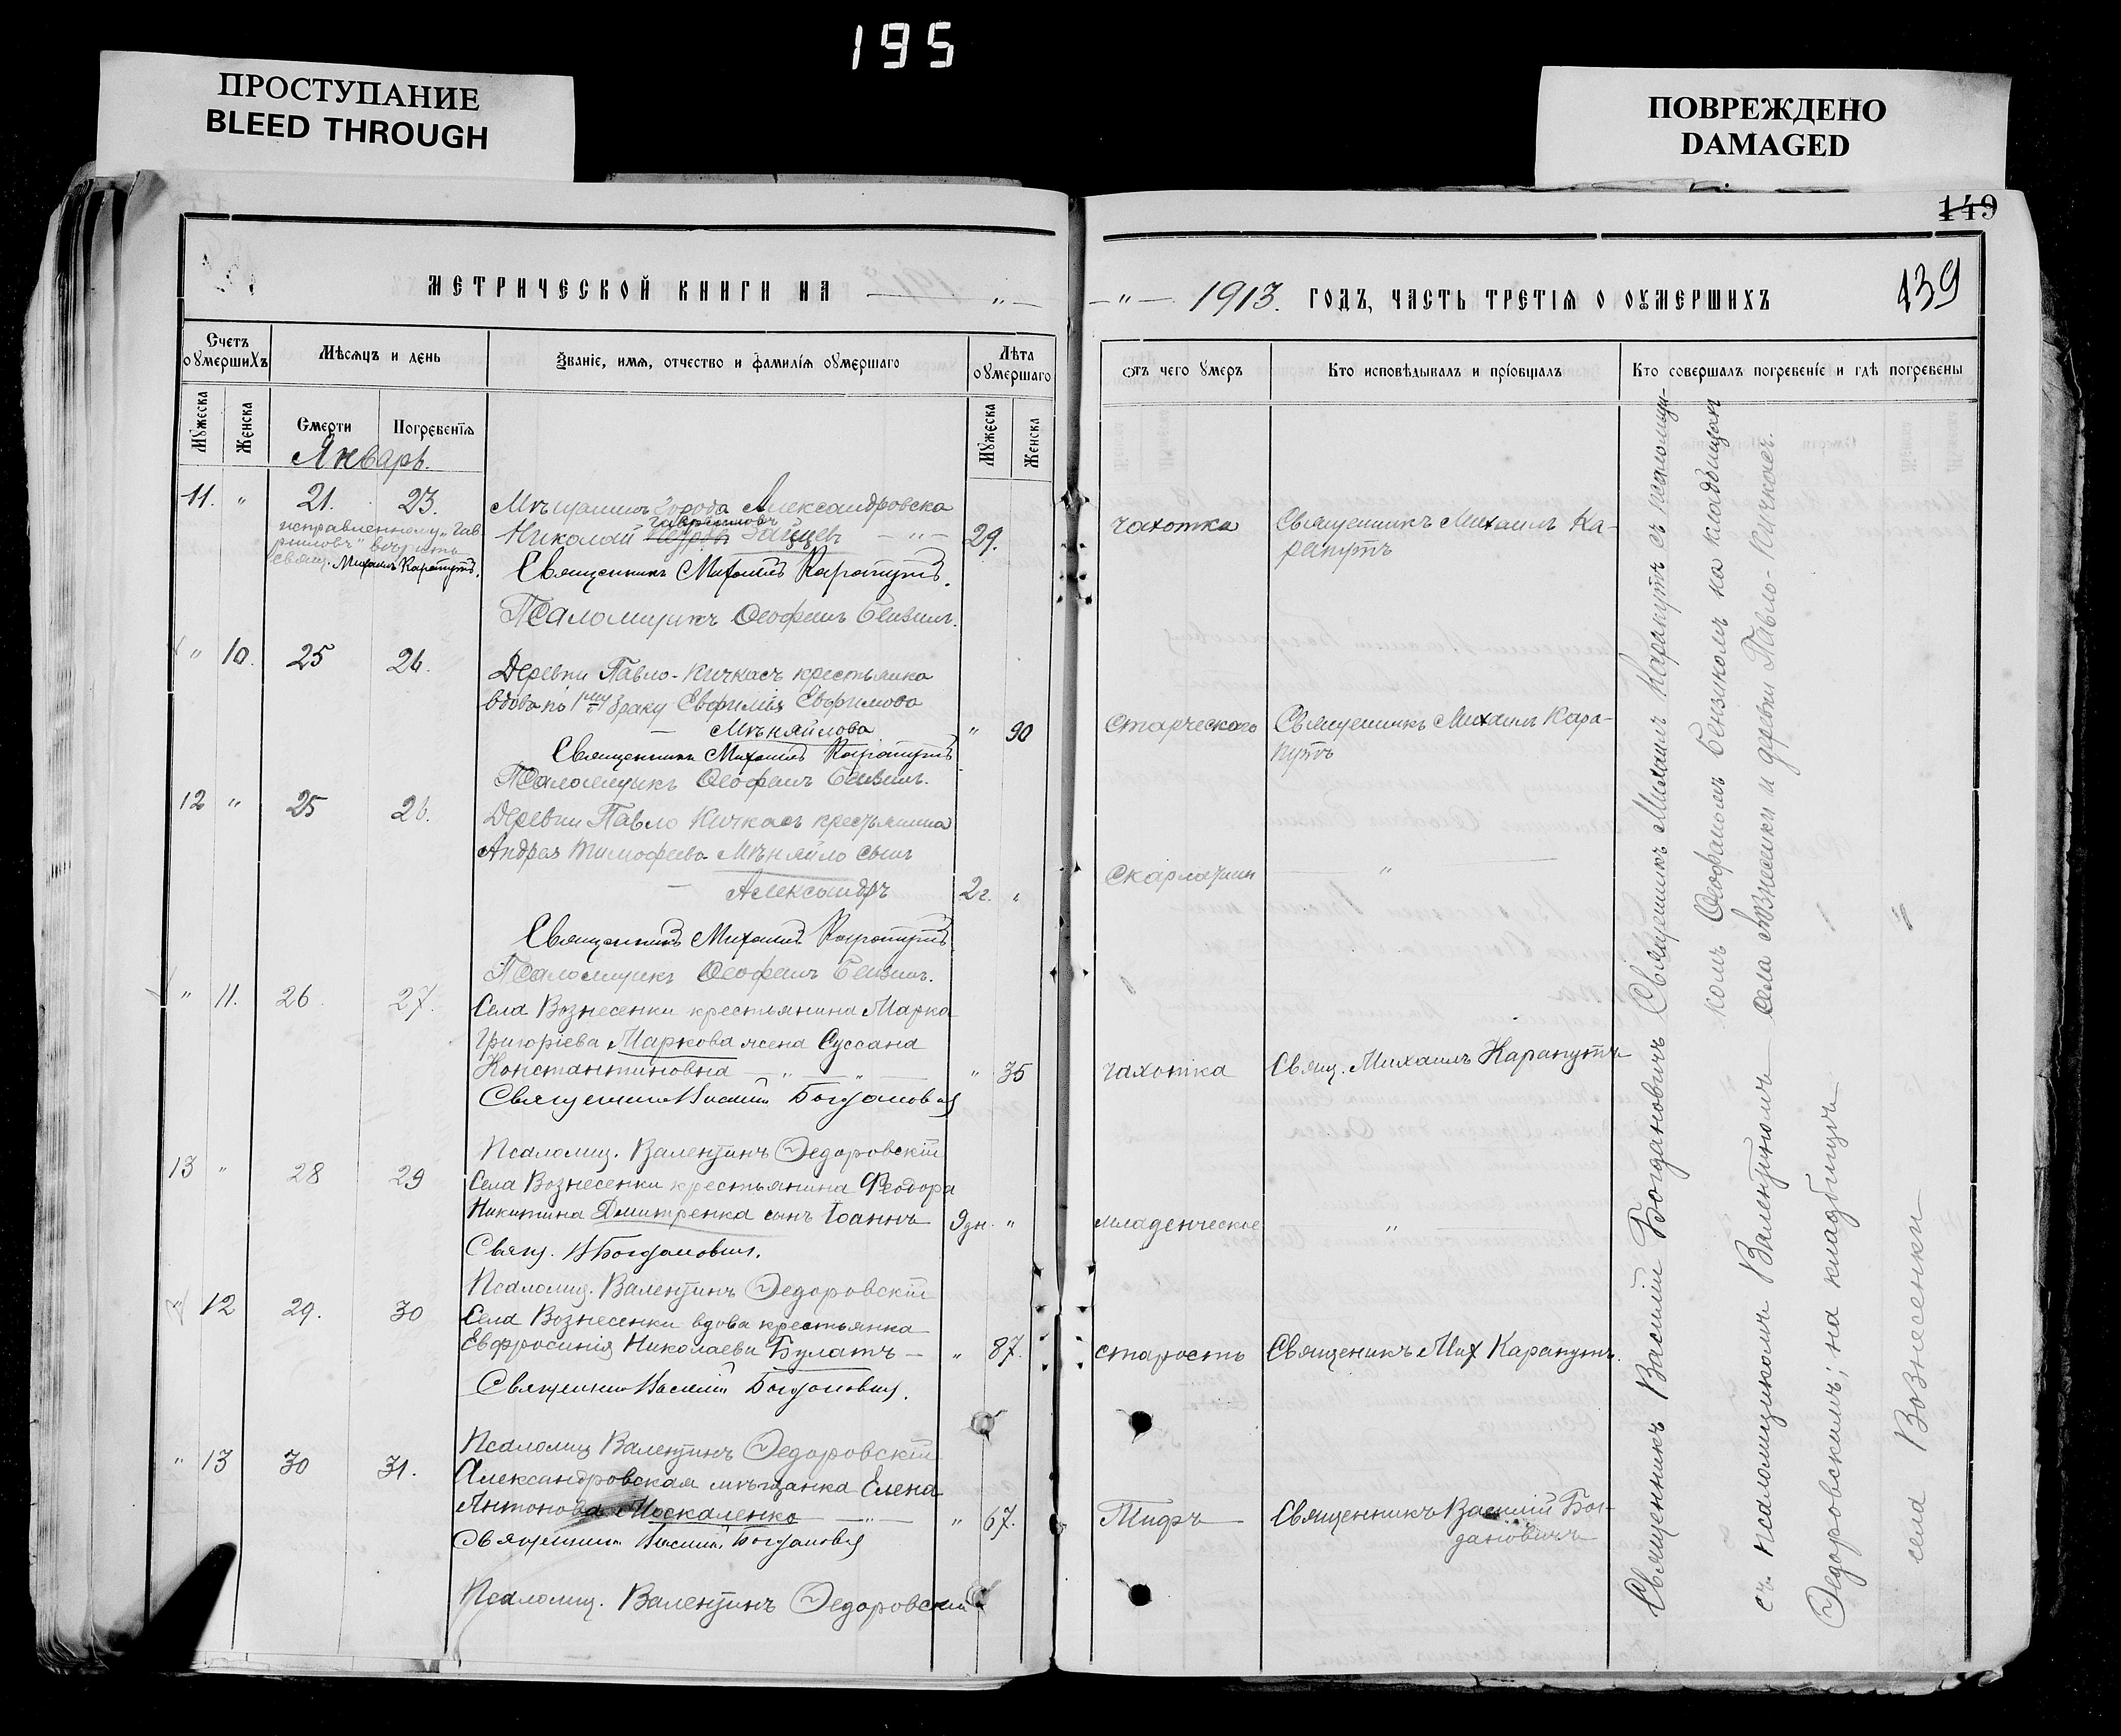 195
ПРОСТУПАНИЕ
BLEED THROUGH
ПОВРЕЖДЕНО
DAMAGED
149
139
МЕТРИЧЕСКОЙ КНИГИ НА — „ —
— „ — 1913. ГОДЪ, ЧАСТЬ ТРЕТІЯ О ОУМЕРШИХЪ
Счетъ оумершихъ
Мѣсяцъ и день
Званіе, имя, отчество и фамилія оумершаго
Лѣта оумершаго
отъ чего умеръ
Кто исповѣдывалъ и пріобщалъ
Кто совершалъ погребеніе и гдѣ погребены
Мужеска
Женска
Смерти
Погребенія
Мужеска
Женска
Январь.
11. „ 21. 23. Мѣщанинъ города Александровска
Гавриловъ
Николай Зайцевъ — „ — 29. чахотка Священникъ Михаилъ Ка-
рапутъ
исправленному „Гав
риловъ" вѣрить
свящ. Михаилъ Карапутъ.
Священникъ Михаилъ Карапутъ.
Псаломщикъ Ѳеофанъ Бензинъ.
„ 10. 25 26. Деревни Павло-Кичкасъ крестьянка
вдова по 1му браку Евфимія Евфимова
— Мѣняйлова „ 90 старческаго Священникъ Михаилъ Кара-
путъ
Священникъ Михаилъ Карапутъ
Псаломщикъ Ѳеофанъ Бензинъ.
12 „ 25 26. Деревни Павло Кичкасъ крестьянина
Андрея Тимофеева Мѣняйло сынъ
— Александръ 2г. „ скарлатин „
Священникъ Михаилъ Карапутъ
Псаломщикъ Ѳеофанъ Бензинъ.
„ 11. 26. 27. Села Вознесенки крестьянина Марка
Григоріева Маркова жена Суссана
Константиновна — „ — „ — „ 35 чахотка Свящ. Михаилъ Карапутъ
Священникъ Василій Богдановичъ
Псаломщ. Валентинъ Ѳедоровскій
13 „ 28 29 Села Вознесенки крестьянина Феодора
Никитина Дмитренка сынъ Іоаннъ 9дн. „ младенческое „
Свящ. В Богдановичъ.
Псаломщ. Валентинъ Ѳедоровскій
„ 12 29. 30 Села Вознесенки вдова крестьянка
Евфросинія Николаева Булатъ — „ 87. старость Священикъ Мих Карапутъ.
Священникъ Василій Богдановичъ.
Псаломщ Валентинъ Ѳедоровскій
„ 13 30 31. Александровская мѣщанка Елена
Антонова Москаленко — „ — „ 67. Тифъ Священникъ Василій Бог-
дановичъ
Священникъ Василій Богдановичъ
Псаломщ. Валентинъ Ѳедоровскій
Священникъ Василій Богдановичъ Священникъ Михаилъ Карапутъ съ псаломщи-
комъ Ѳеофаномъ Бензиномъ на кладбищахъ
съ псаломщикомъ Валентиномъ села Вознесенки и деревни Павло-Кичкасъ.
Ѳедоровскимъ; на кладбищѣ
села Вознесенки